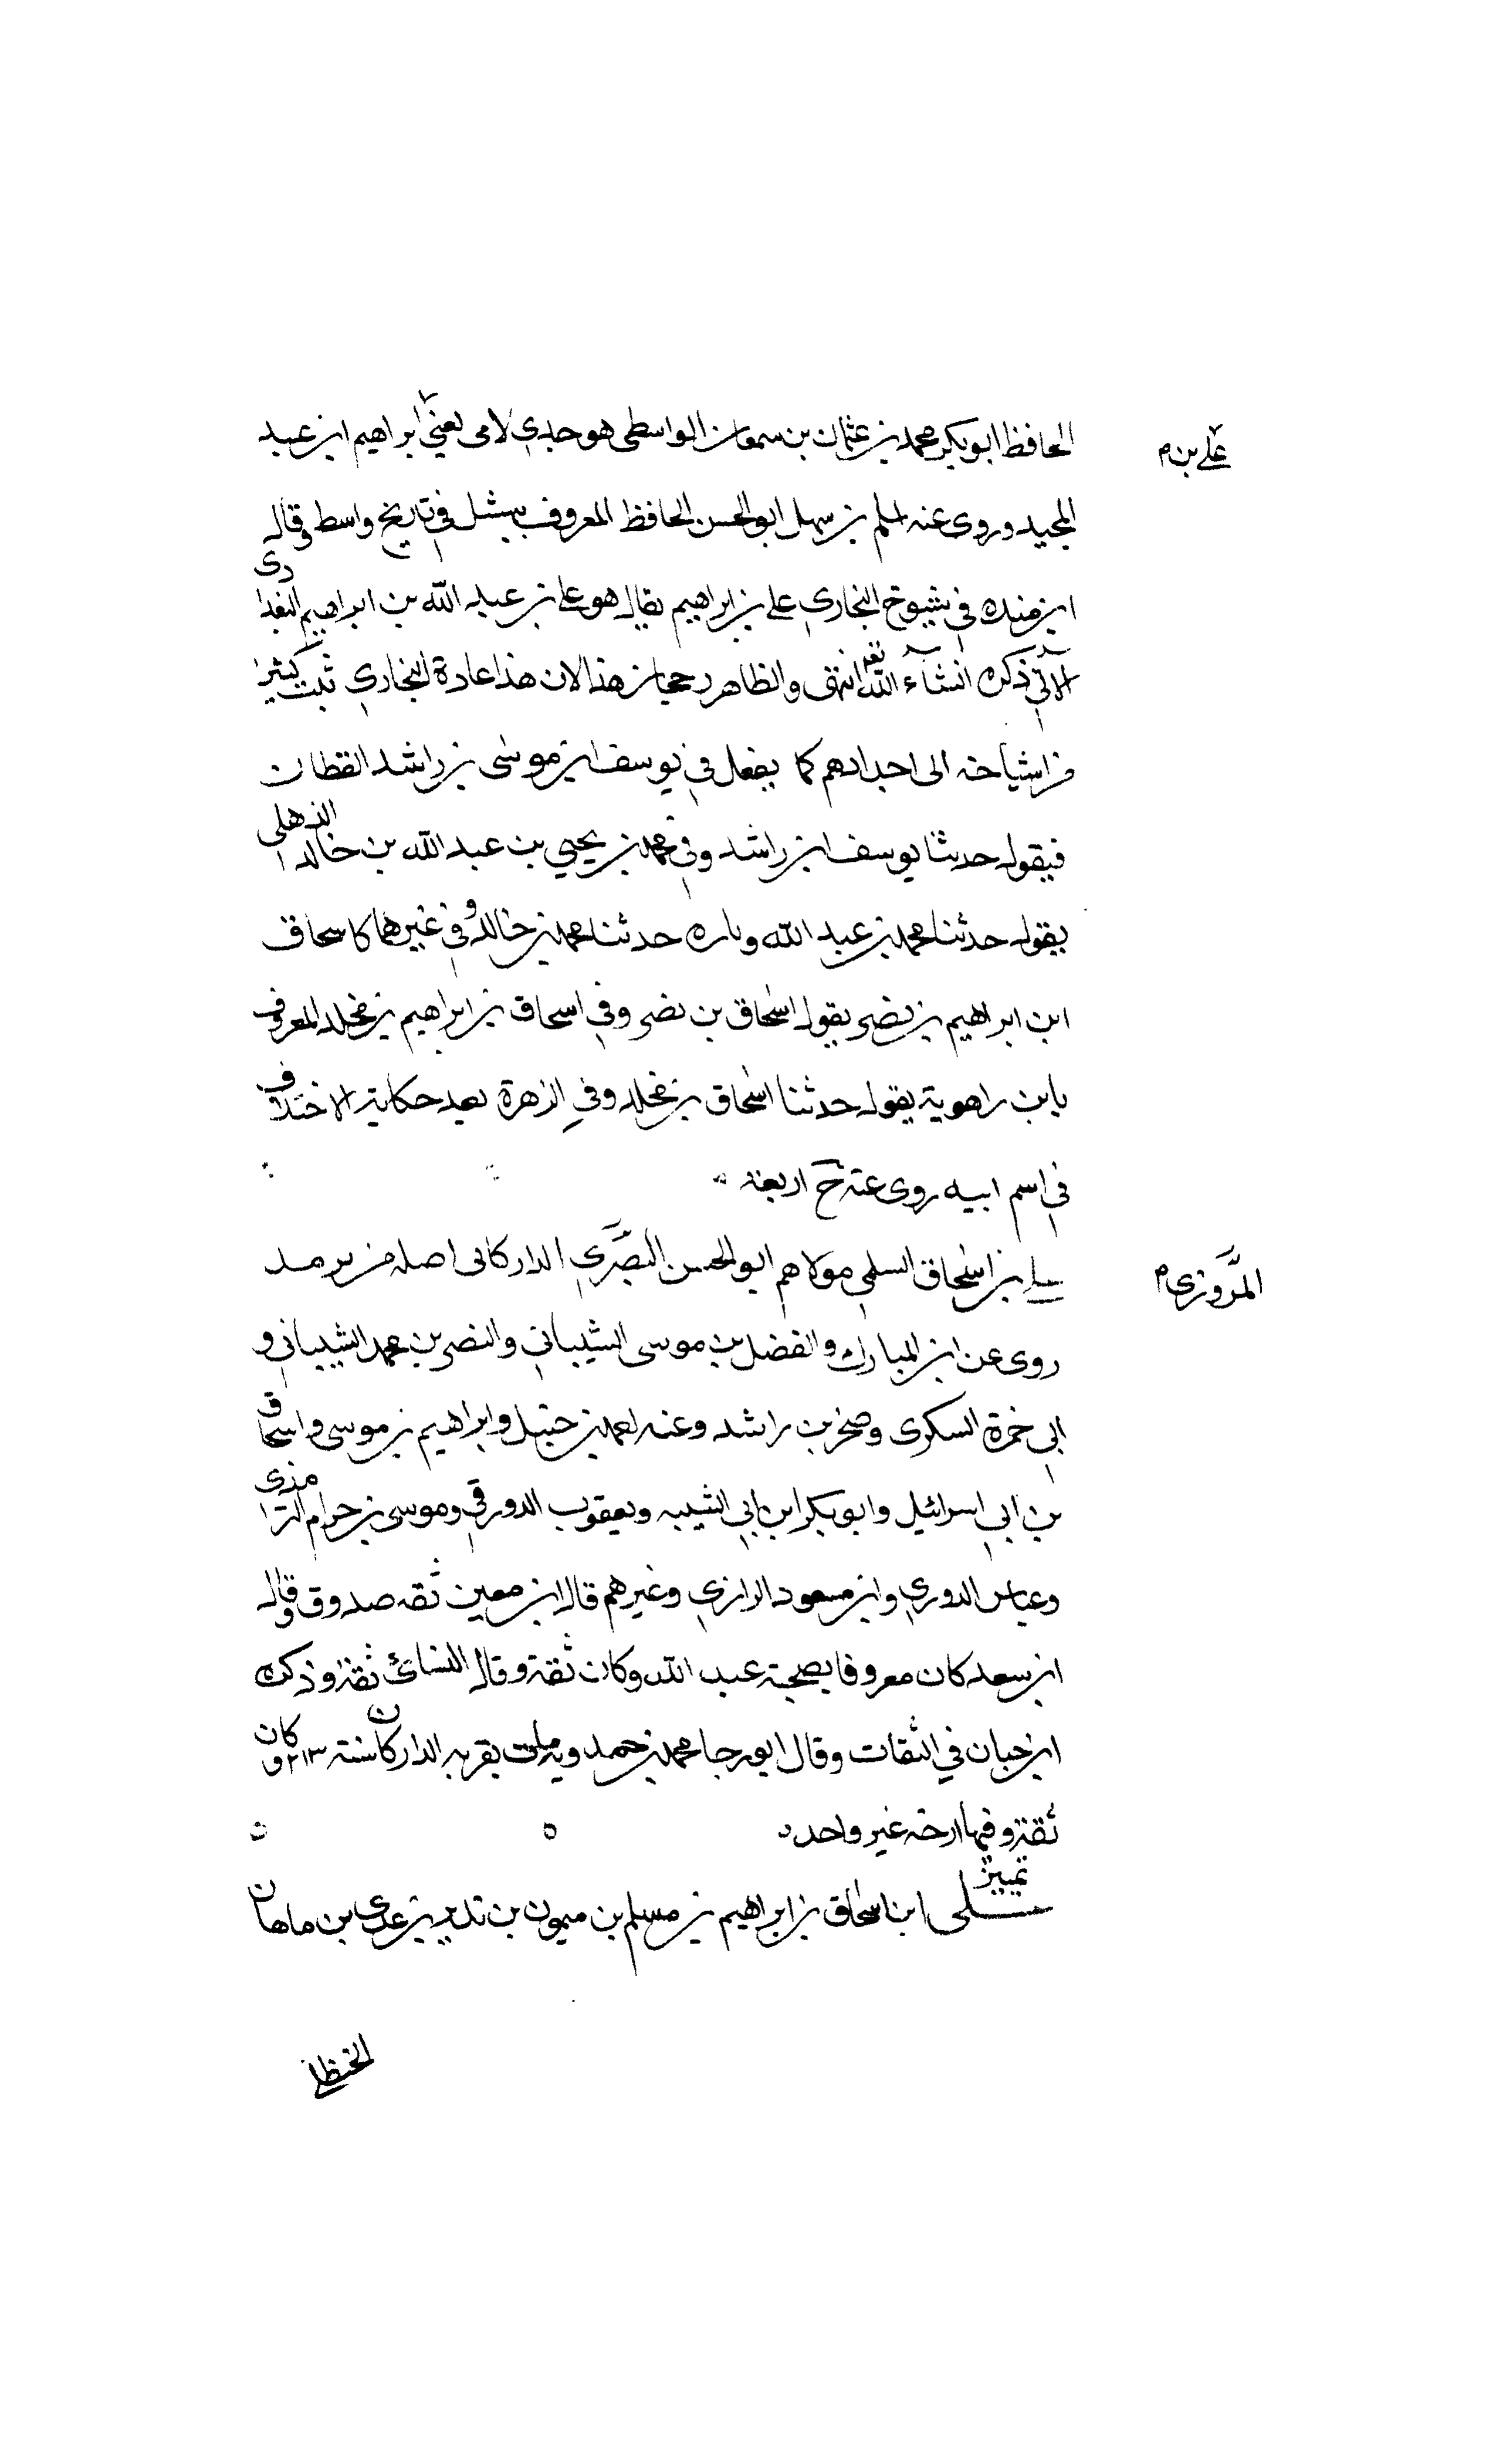 الحافظ ابو بكر محمد بن عثمان بن سمعان الواسطى هو جدي لامى يعني ابراهيم ابن عبد
علي بن م
المجيد وروى عنه اسلم بن سهل ابو الحسن الحافظ المعروف ببحشل في تاريخ واسط وقال
ابن منده في شيوخ البخاري علي بن ابراهيم يقال هو علي بن عبد الله بن ابراهيم البغدادى
الاتي ذكره انشاء الله تع انتهى والظاهر رجحان هذا لان هذا عادة البخاري ينسب كثيرا
من اشياخه الى اجدادهم كما يفعل في يوسف ابن موسى بن راشد القطان
فيقول حدثنا يوسف ابن راشد وفي محمد بن يحيى بن عبد الله بن خالد الذهلى
يقول حدثنا محمد بن عبد الله وتاره حدثنا محمد بن خالد وفي غيرهما كاسحاق
ابن ابراهيم بن نصر يقول اسحاق بن نصر وفي اسحاق بن ابراهيم بن مخلد المعروف
بابن راهوية يقول حدثنا اسحاق بن مخلد وفي الزهرة بعد حكاية الاختلاف
في اسم ابيه روى عنه خ اربعة
علي بن اسحاق السلمي مولاهم ابو الحسن البصري الداركانى اصله من ترمذ
المروزي م
روى عن ابن المبارك والفضل بن موسى الشيباني والنضر بن محمد الشيباني و
ابى حمزة السكرى وصخر بن راشد وعنه احمد بن حنبل وابراهيم بن موسى واسحاق
بن ابي اسرائيل وابو بكر ابن ابي الشيبه ويعقوب الدورقي وموسى بن حرام الترمذى
وعباس الدوري وابن مسعود الرازي وغيرهم قال ابن معين ثقه صدوق وقال
ابن سعد كان معروفا بصحبة عبد الله وكان ثقة وقال النسائي ثقة وذكره
ابن حبان في الثقات وقال ابو رجا محمد بن حمدويه مات بقريه الداركان سنة ٢١٣ وكان
ثقة وفيها ارخه غير واحد
تمييز
علي ابن اسحاق بن ابراهيم بن مسلم بن ميمون بن بن عدي بن ماهان
الحنظلي